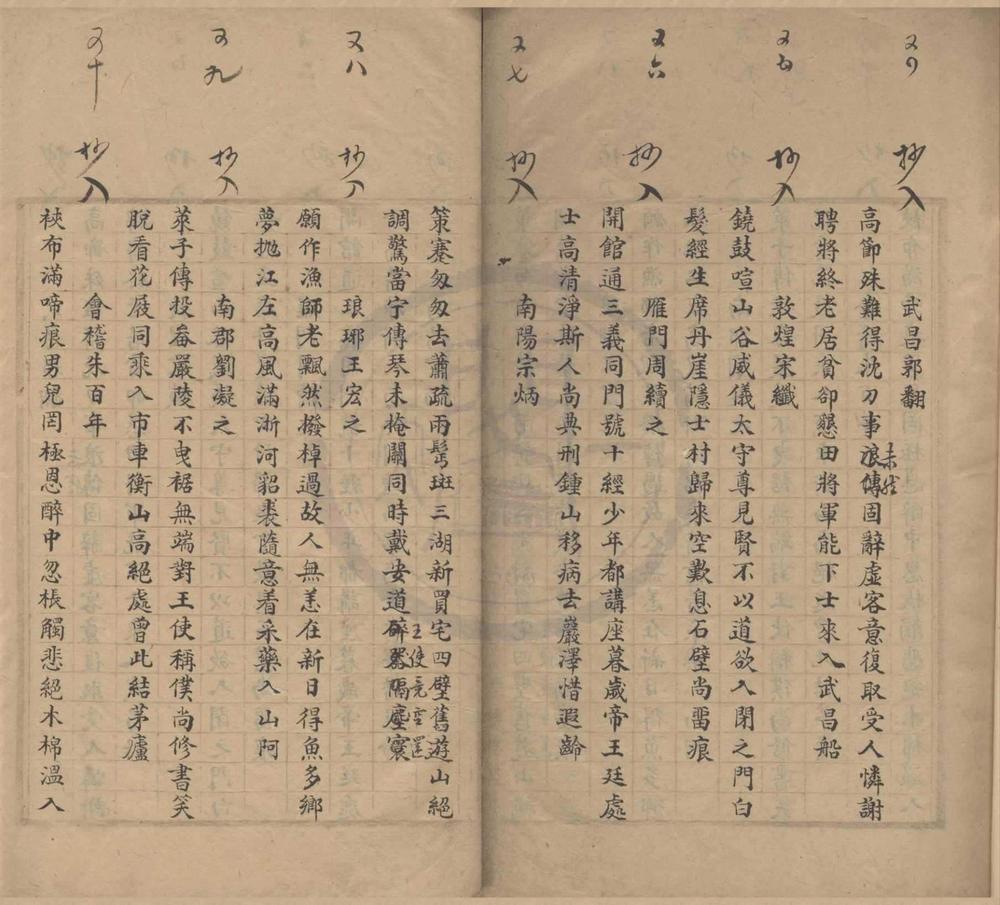 又四 抄入
武昌郭翻
高節殊難得沈刀事浪傳固辭虛客意復取受人憐謝
聘將終老居貧卻懇田將軍能下士來入武昌船
又五 抄入
敦煌宋纖
鐃鼓喧山谷威儀太守尊見賢不以道欲入閉之門白
髮經生席丹崖隱士村歸來空歎息石壁尚畱痕
又六 抄入
雁門周續之
開館通三義同門號十經少年都講座暮歲帝王廷處
士高清淨斯人尚典刑鍾山移病去巖澤惜遐齡
又七 抄入
南陽宗炳
策蹇匆匆去蕭疏兩髩斑三湖新買宅四壁舊遊山絕
調驚當宁傳琴未掩關同時戴安道碎器隔塵寰
王使竟空還
又八 抄入
琅琊王宏之
願作漁師老飄然撥棹過故人無恙在新日得魚多鄉
夢拋江左高風滿浙河貂裘隨意着采藥入山阿
又九 抄入
南郡劉凝之
萊子傳投畚嚴陵不曳裾無端對王使稱僕尚修書笑
脫看花屐同乘入市車衡山高絕處曾此結茅廬
又十 抄入
會稽朱百年
裌布滿啼痕男兒罔極恩醉中忽棖觸悲絕木棉溫入